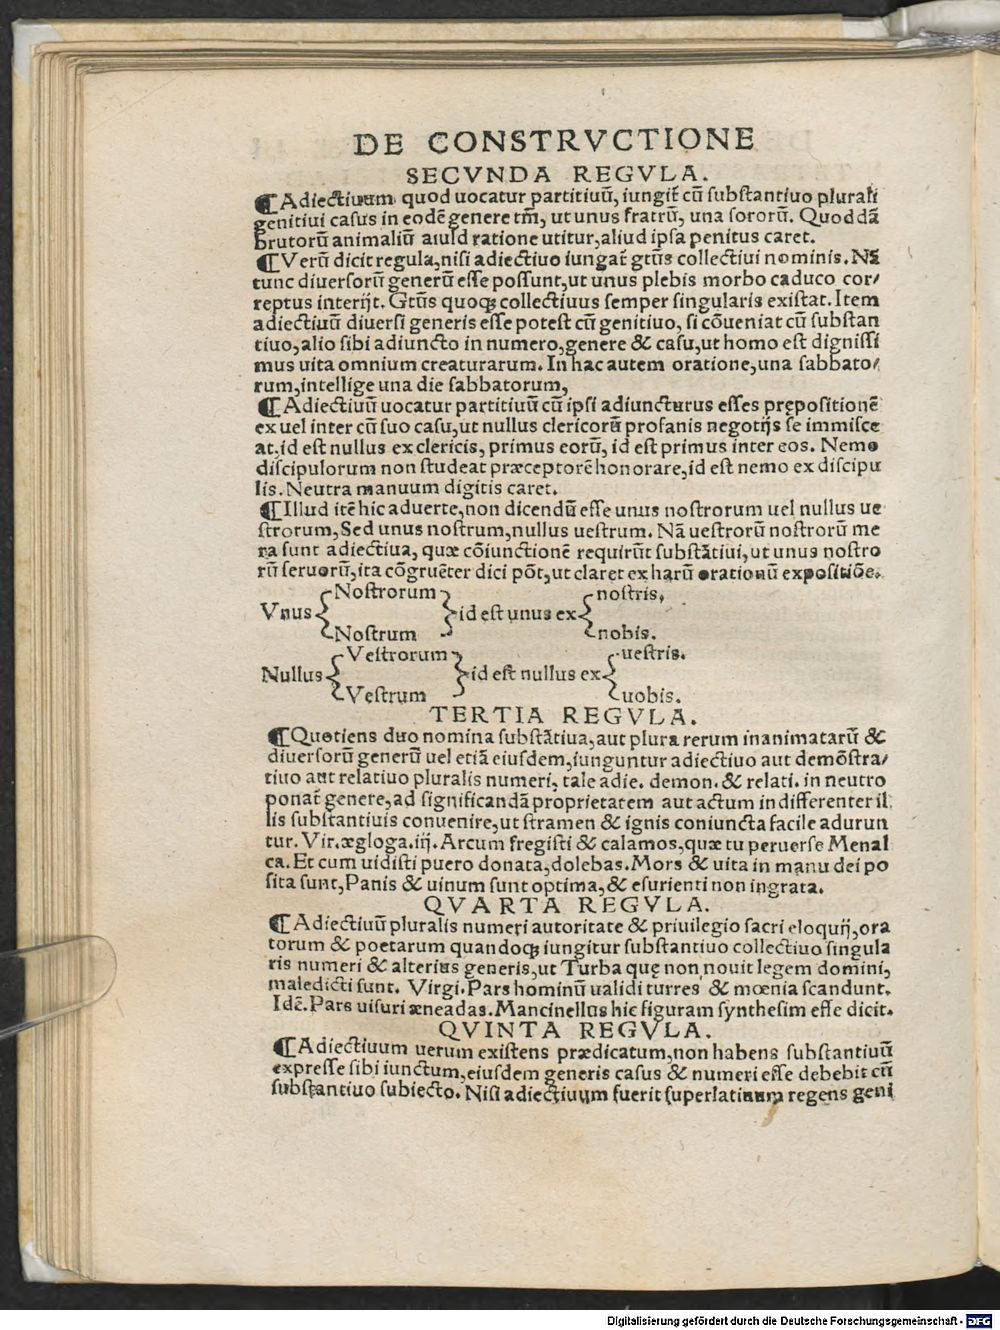 DE CONSTRVCTIONE
SECVNDA REGVLA.
¶Adiectiuum quod uocatur partitiuũ, iungit᷑ cũ substantiuo plurali
genitiui casus in eodẽ genere tm̃, ut unus fratrũ, una sororũ. Quoddã
brutorũ animaliũ aiuid ratione utitur,aliud ipsa penitus caret.
¶Verũ dicit regula,nisi adiectiuo iungat᷑ gtũs collectiui nominis. Nã
tunc diuersorũ generũ esse possunt,ut unus plebis morbo caduco cor/
reptus interijt. Gtũs quoqꝫ collectiuus semper singularis existat. Item
adiectiuũ diuersi generis esse potest cũ genitiuo, si cõueniat cũ substan
tiuo,alio sibi adiuncto in numero,genere & casu,ut homo est dignissi
mus uita omnium creaturarum. In hac autem oratione,una sabbato/
rum,intellige una die sabbatorum,
¶Adiectiuũ uocatur partitiuũ cũ ipsi adiuncturus esses prępositionẽ
ex uel inter cũ suo casu,ut nullus clericorũ profanis negotijs se immisce
at,id est nullus ex clericis, primus eorũ, id est primus inter eos. Nemo
discipulorum non studeat præceptorẽ honorare,id est nemo ex discipu
lis. Neutra manuum digitis caret.
¶Illud itẽ hic aduerte,non dicendũ esse unus nostrorum uel nullus ue
strorum, Sed unus nostrum,nullus uestrum. Nã uestrorũ nostrorũ me
ra sunt adiectiua, quæ cõiunctionẽ requirũt substãtiui,ut unus nostro
rũ seruorũ,ita cõgruẽter dici põt,ut claret ex harũ orationũ expositiõe.
Vnus { Nostrorum } id est unus ex { nostris,
Nostrum nobis.
Nullus { Vestrorum } id est nullus ex { uestris.
Vestrum uobis.
TERTIA REGVLA.
¶Quotiens duo nomina substãtiua,aut plura rerum inanimatarũ &
diuersorũ generũ uel etiã eiusdem,iunguntur adiectiuo aut demõstra/
tiuo aut relatiuo pluralis numeri, tale adie. demon. & relati. in neutro
ponat᷑ genere,ad significandã proprietatem aut actum indifferenter il
lis substantiuis conuenire,ut stramen & ignis coniuncta facile adurun
tur. Vir.ægloga.iij. Arcum fregisti & calamos,quæ tu peruerse Menal
ca. Et cum uidisti puero donata,dolebas. Mors & uita in manu dei po
sita sunt, Panis & uinum sunt optima,& esurienti non ingrata.
QVARTA REGVLA.
¶Adiectiuũ pluralis numeri autoritate & priuilegio sacri eloquij,ora
torum & poetarum quandoqꝫ iungitur substantiuo collectiuo singula
ris numeri & alterius generis,ut Turba quę non nouit legem domini,
maledicti sunt. Virgi. Pars hominũ ualidi turres & mœnia scandunt.
Idẽ. Pars uisuri æneadas. Mancinellus hic figuram synthesim esse dicit.
QVINTA REGVLA.
¶Adiectiuum uerum existens prædicatum,non habens substantiuũ
expresse sibi iunctum,eiusdem generis casus & numeri esse debebit cũ
substantiuo subiecto. Nisi adiectiuum fuerit superlatiuum regens geni
Digitalisierung gefördert durch die Deutsche Forschungsgemeinschaft - DFG